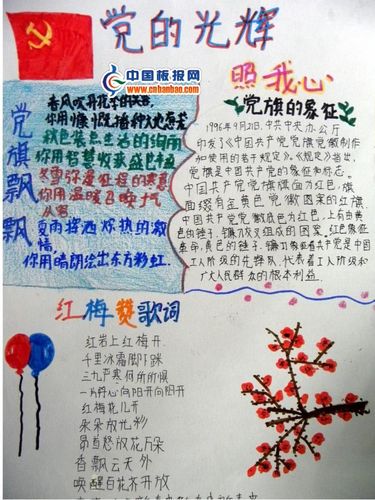 党的光辉
照我心
中国板报网
www.cnbanbao.com
党旗飘飘
你用慷慨播种火焰
秋色装点生活的绚丽
你用智慧收获盛世
你用温暖召唤
夏雨挥洒炽热的激
情
你用晴朗绘出东方彩虹.
党旗的象征
1996年9月21日,中共中央办公厅
印发了《中国共产党党旗党徽制作
和使用的若干规定》。《规定》指出,
党旗是中国共产党的象征和标志。
中国共产党党旗旗面为红色,旗
面缀有金黄色党徽图案的红旗
中国共产党党徽底色为红色,上有黄
色的锤子、镰刀交叉组成的图案。红色象征
革命,黄色的锤子、镰刀象征着共产党是中国
工人阶级的先锋队,代表着工人阶级和
广大人民群众的根本利益.
红梅赞歌词
红岩上红梅开
千里冰霜脚下踩
三九严寒何所惧
一片丹心向阳开向阳开
红梅花儿开
朵朵放光彩
昂首怒放花万朵
香飘云天外
唤醒百花齐开放